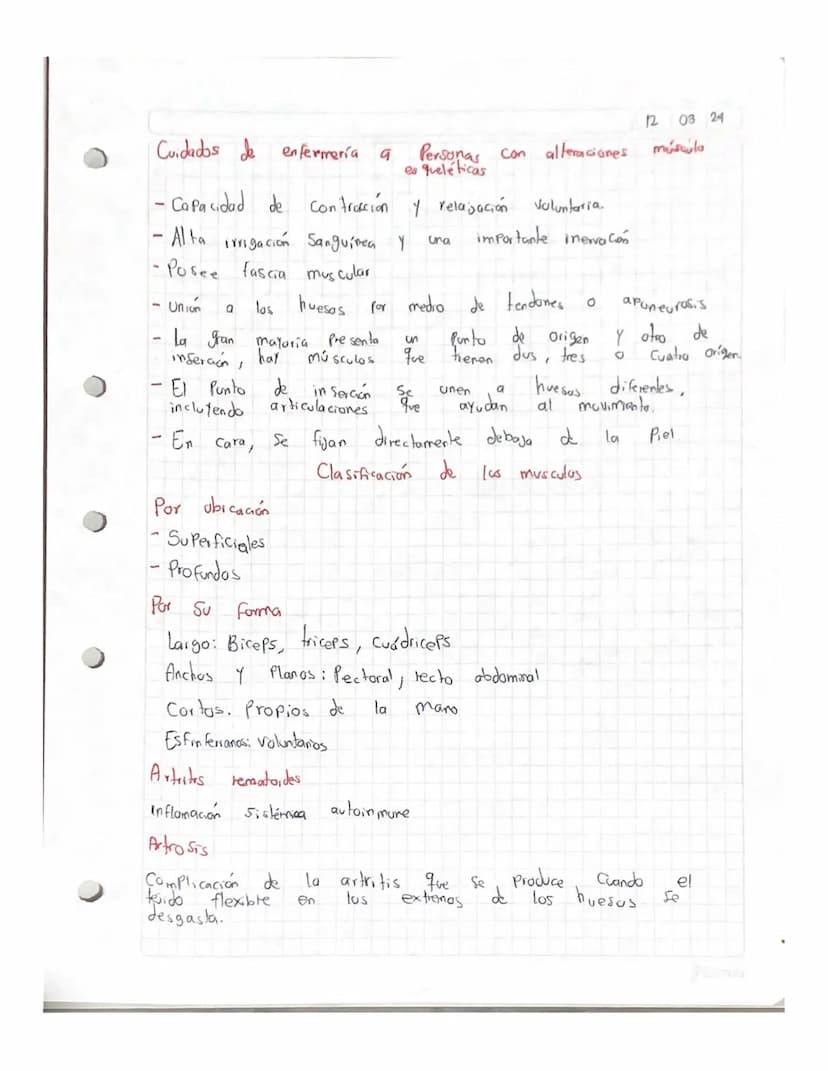 12 03 24
Cuidados de enfermería a Personas con alteraciones músculo
esqueléticas
- Capacidad de contracción y relajación voluntaria.
- Alta irrigación Sanguínea y una importante inervación
- Posee fascia muscular
- Unión a los huesos por medro de tendones o aponeurosis
- La gran mayoría Presenta un punto de origen y otro de
inserción, hay músculos que tienen dos, tres o cuatro origen.
- El Punto de inserción se unen a huesos diferentes,
inclutendo articulaciones que ayudan al movimiento.
- En cara, se fijan directamente debajo de la Piel
Clasificación de los musculos
Por ubicación
- Superficiales
- Profundos
Por su forma
Largo: Biceps, triceps, cuádriceps
Anchos y Planos: Pectoral, recto abdominal
Cortos. Propios de la mano
Voluntarios
Artritis rematoides
Inflamación sistémica autoinmune
Artrosis
Complicación de la artritis que se produce Cuando el
tejido flexible en los extremos de los huesos se
desgasta.